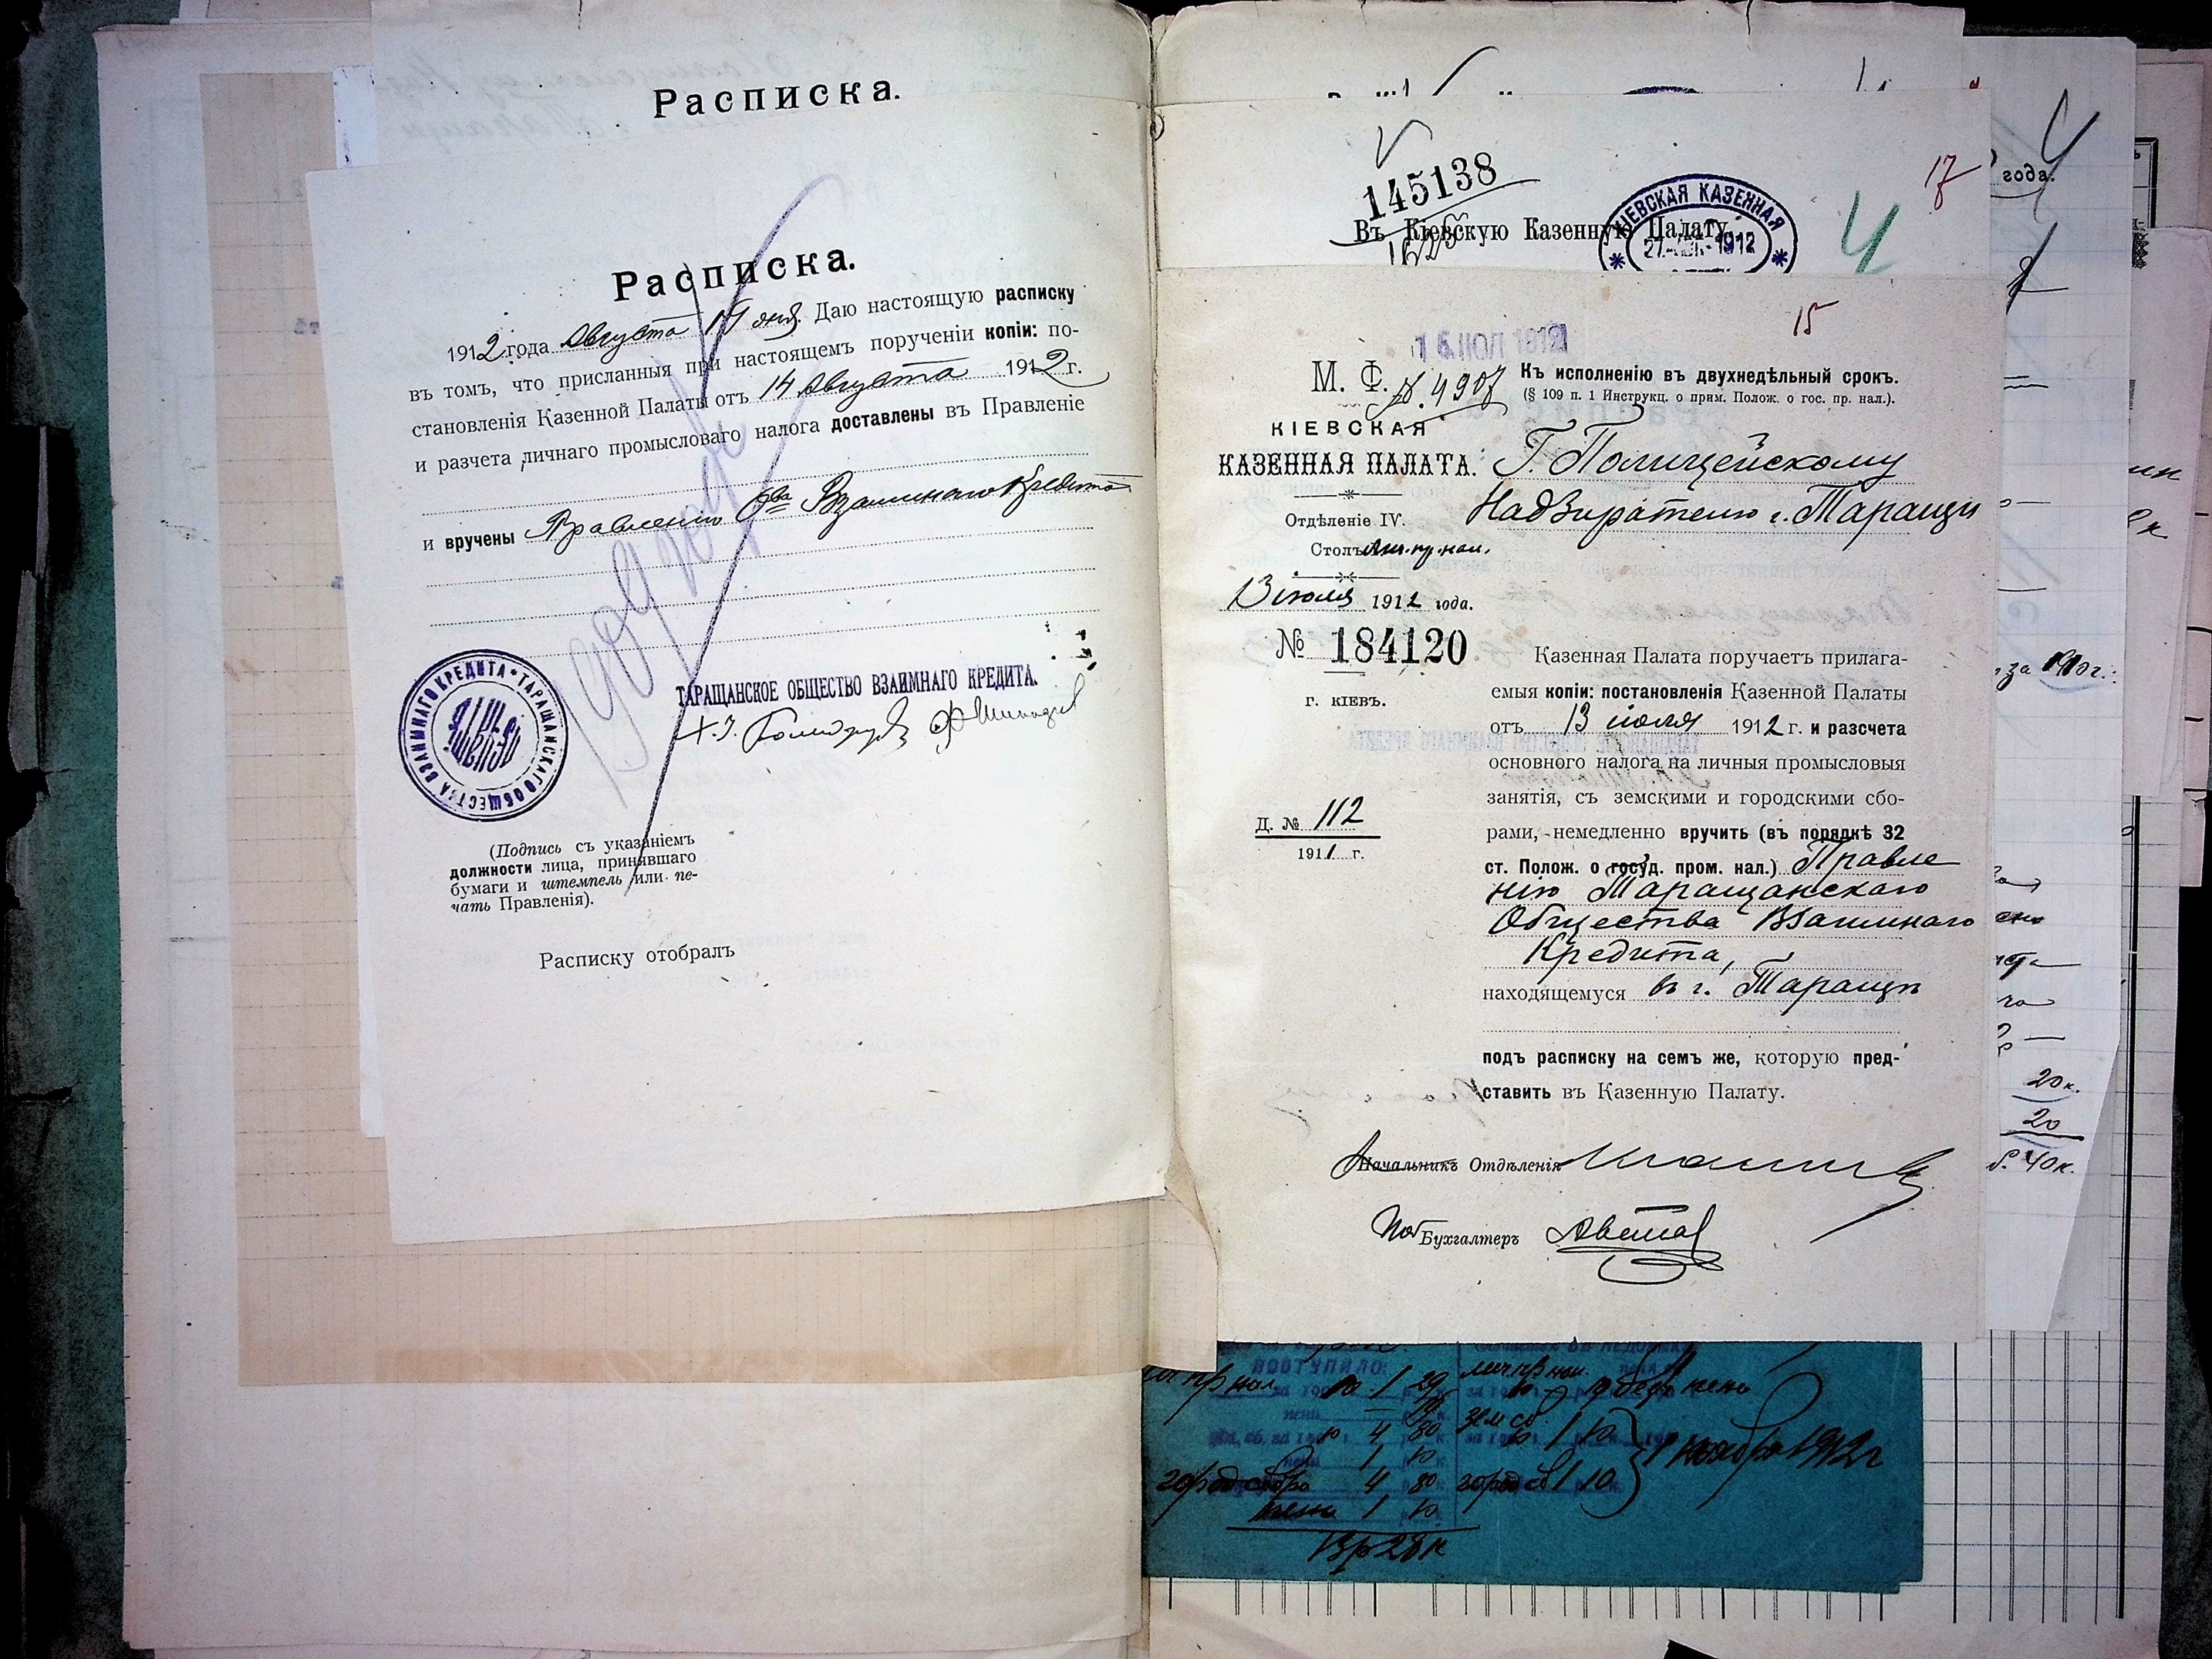 Расписка.
Расписка.
1912 года Августа 14 дня. Даю настоящую расписку
въ томъ, что присланныя при настоящемъ порученіи копіи: по-
становленія Казенной Палаты отъ 14 Августа 1912 г.
и разчета личнаго промысловаго налога доставлены въ Правленіе
и вручены Правленію О-ва Взаимнаго Кредита
1909 года
ТАРАЩАНСКОЕ ОБЩЕСТВО ВЗАИМНАГО КРЕДИТА.
ТАРАЩАНСКАГО ОБЩЕСТВА ВЗАИМНАГО КРЕДИТА
(Подпись съ указаніемъ
должности лица, принявшаго
бумаги и штемпель или пе-
чать Правленія).
Расписку отобралъ
145138
17
Въ Кіевскую Казенную Палату.
КІЕВСКАЯ КАЗЕННАЯ
1912
4
года.
15
16 ІЮЛ 1912
М. Ф. № 4907
Къ исполненію въ двухнедѣльный срокъ.
(§ 109 п. 1 Инструкц. о прим. Полож. о гос. пр. нал.).
КІЕВСКАЯ
КАЗЕННАЯ ПАЛАТА.
Г. Полицейскому
Надзирателю г. Таращи
Отдѣленіе IV.
Столъ лич. пр. нал.
13 іюля 1912 года.
№ 184120
г. КІЕВЪ.
Д. № 112
1911 г.
Казенная Палата поручаетъ прилага-
емыя копіи: постановленія Казенной Палаты
отъ 13 іюля 1912 г. и разсчета
основного налога на личныя промысловыя
занятія, съ земскими и городскими сбо-
рами, немедленно вручить (въ порядкѣ 32
ст. Полож. о госуд. пром. нал.) Правле
нію Таращанскаго
Общества Взаимнаго
Кредита,
находящемуся въ г. Таращѣ
подъ расписку на семъ же, которую пред-
ставить въ Казенную Палату.
Начальникъ Отдѣленія
Бухгалтеръ
за 1910 г.
20 к.
20
40 к.
ПОСТУПИЛО:
1 29
4 80
1 10
город сбора 4 80
пени 1 10
13 р 28 к
зем сб.
1 10
город сб 1 10
1 ноября 1912 г